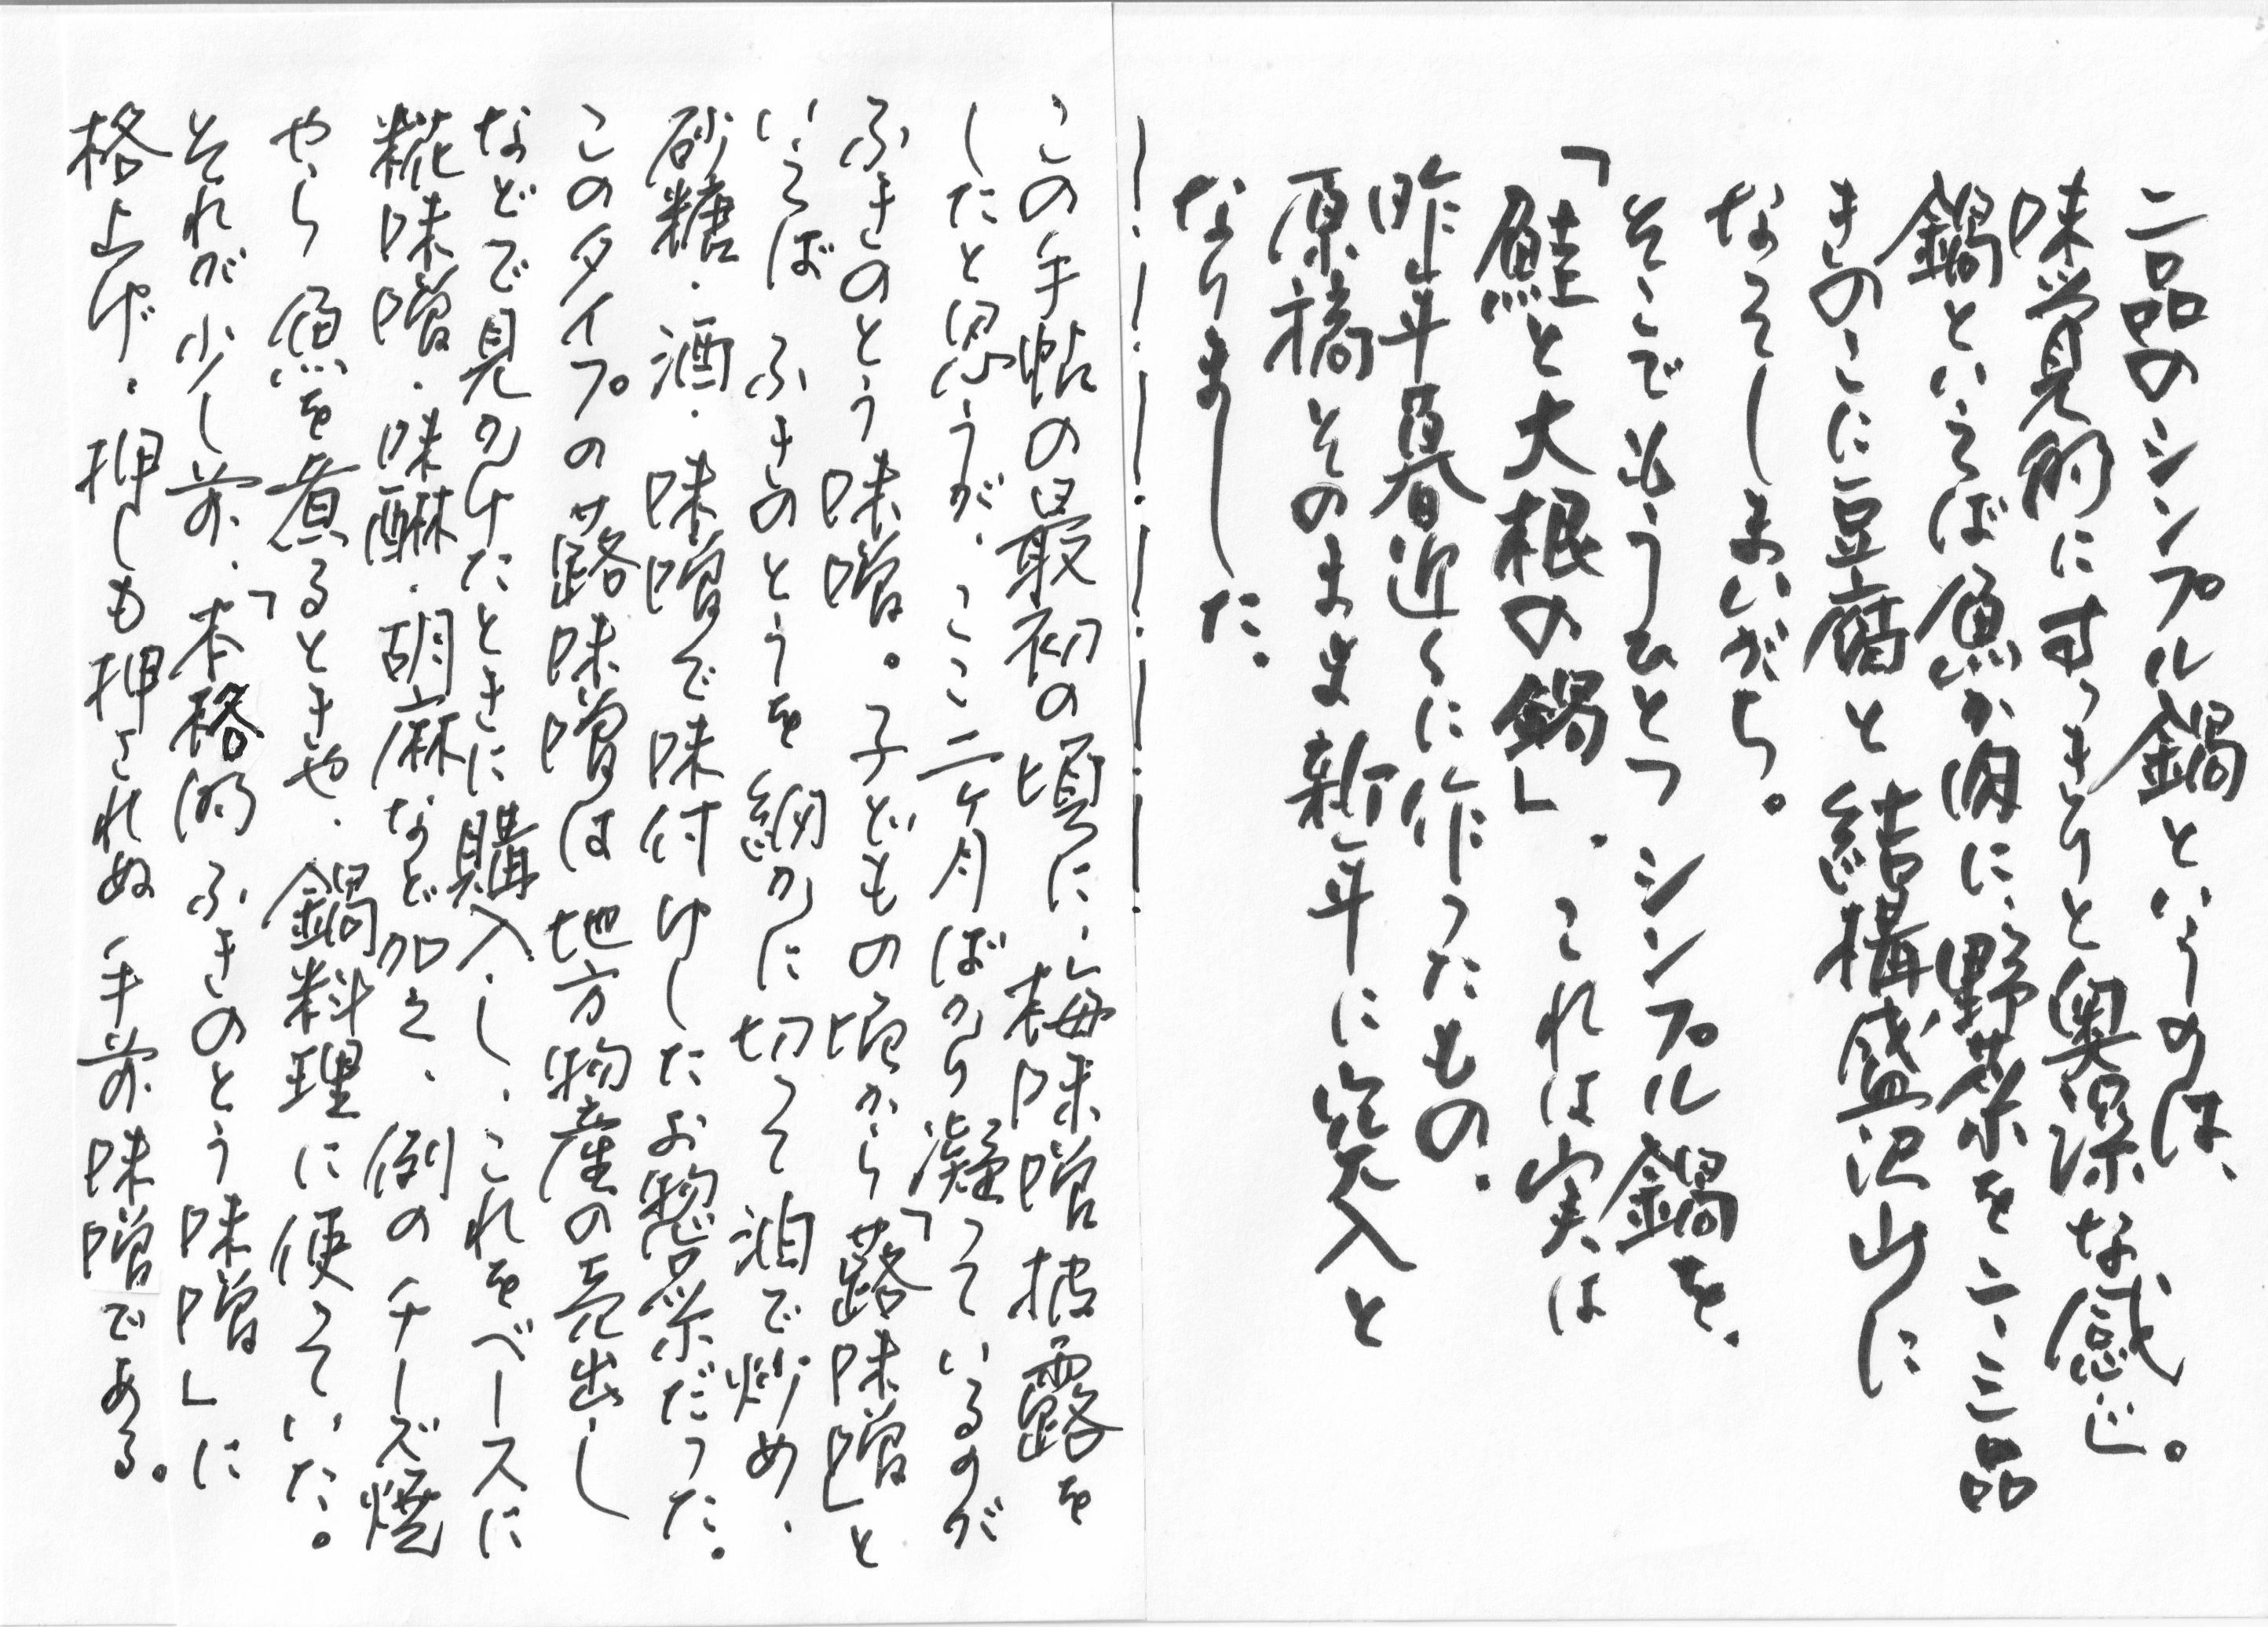 二品のシンプル鍋というのは、
味覚的にすっきりと奥深な感じ。
鍋といえば魚か肉に、野菜を二、三品
きのこに豆腐と結構盛沢山に
なってしまいがち。
そこでもうひとつシンプル鍋を、
「鮭と大根の鍋」、これは実は
昨年暮近くに作ったもの。
原稿そのまま新年に突入と
なりました。
この手帖の最初の頃に、梅味噌披露を
したと思うが、ここ二ケ月ばかり凝っているのが
ふきのとう味噌。子どもの頃から「蕗味噌」と
いえば ふきのとうを細かに切って油で炒め、
砂糖・酒・味噌で味付けしたお惣菜だった。
このタイプの蕗味噌は地方物産の売出し
などで見かけたときに購入し、これをベースに
糀味噌・味醂・胡麻など加え、例のチーズ焼
やら魚を煮るときや、鍋料理に使っていた。
それが少し前、「本格的ふきのとう味噌」に
格上げ・押しも押されぬ手前味噌である。